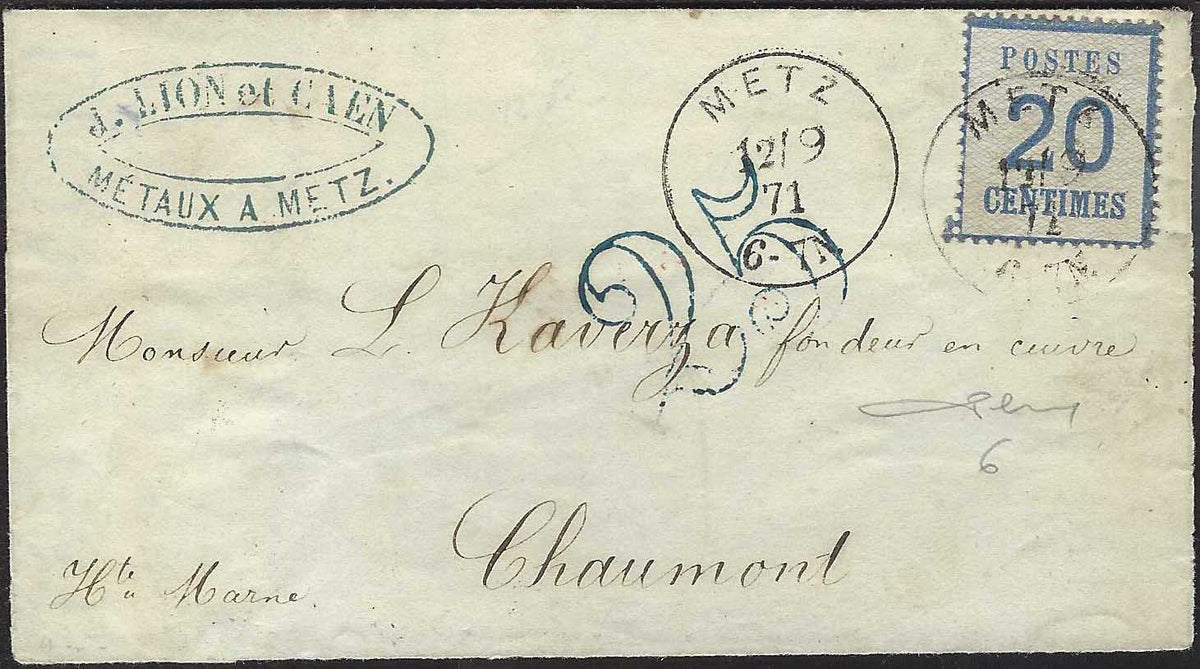 J. LION et CAEN
MÉTAUX A METZ.
METZ
12/9
71
6-7N.
POSTES
20
CENTIMES
METZ
12/9
71
6-7N.
25
Monsieur L. Kaverza fondeur en cuivre
6
Chaumont
Hte Marne.